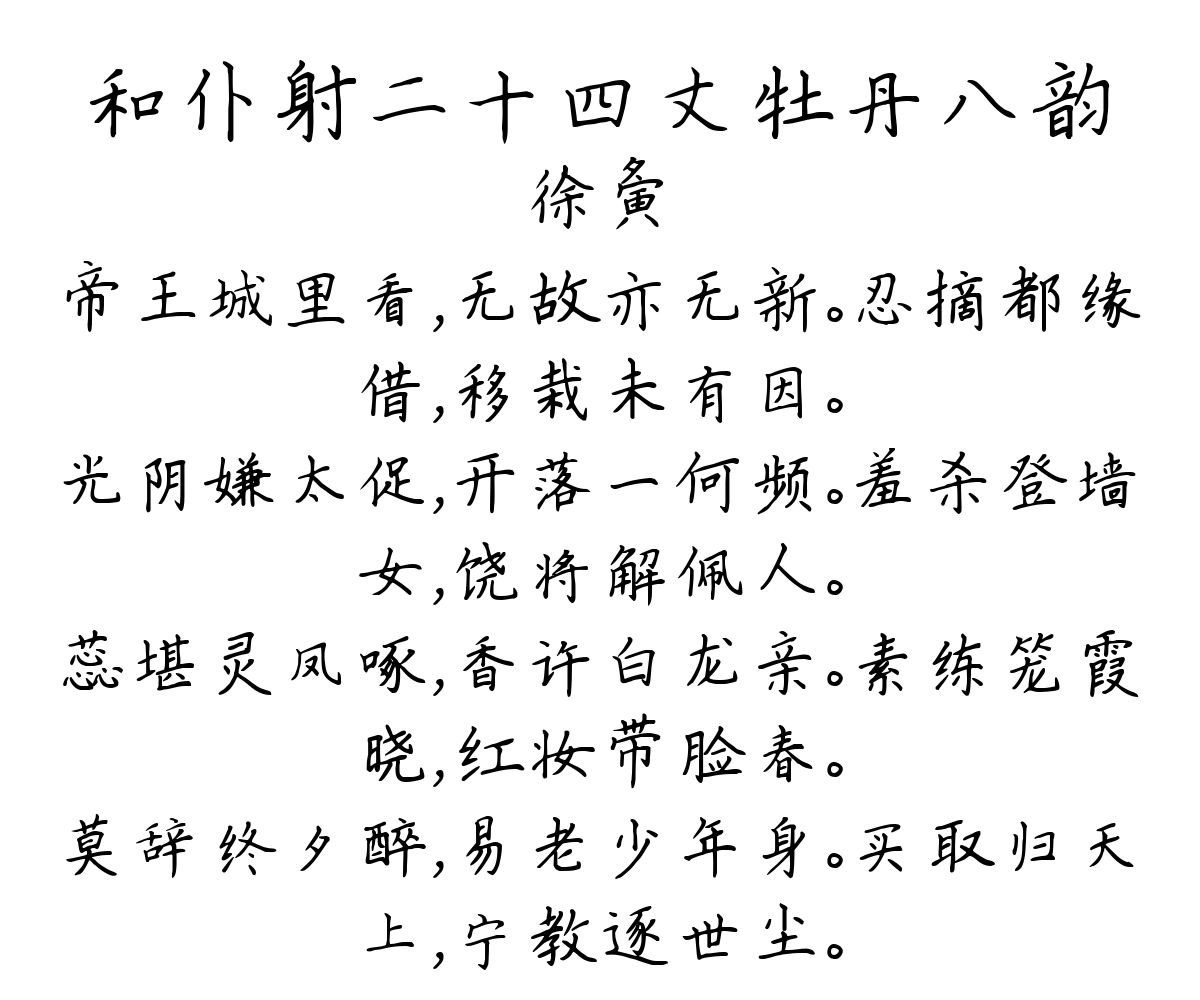 和仆射二十四丈牡丹八韵
徐夤
帝王城里看,无故亦无新。忍摘都缘
借,移栽未有因。
光阴嫌太促,开落一何频。羞杀登墙
女,饶将解佩人。
蕊堪灵凤啄,香许白龙亲。素练笼霞
晓,红妆带脸春。
莫辞终夕醉,易老少年身。买取归天
上,宁教逐世尘。